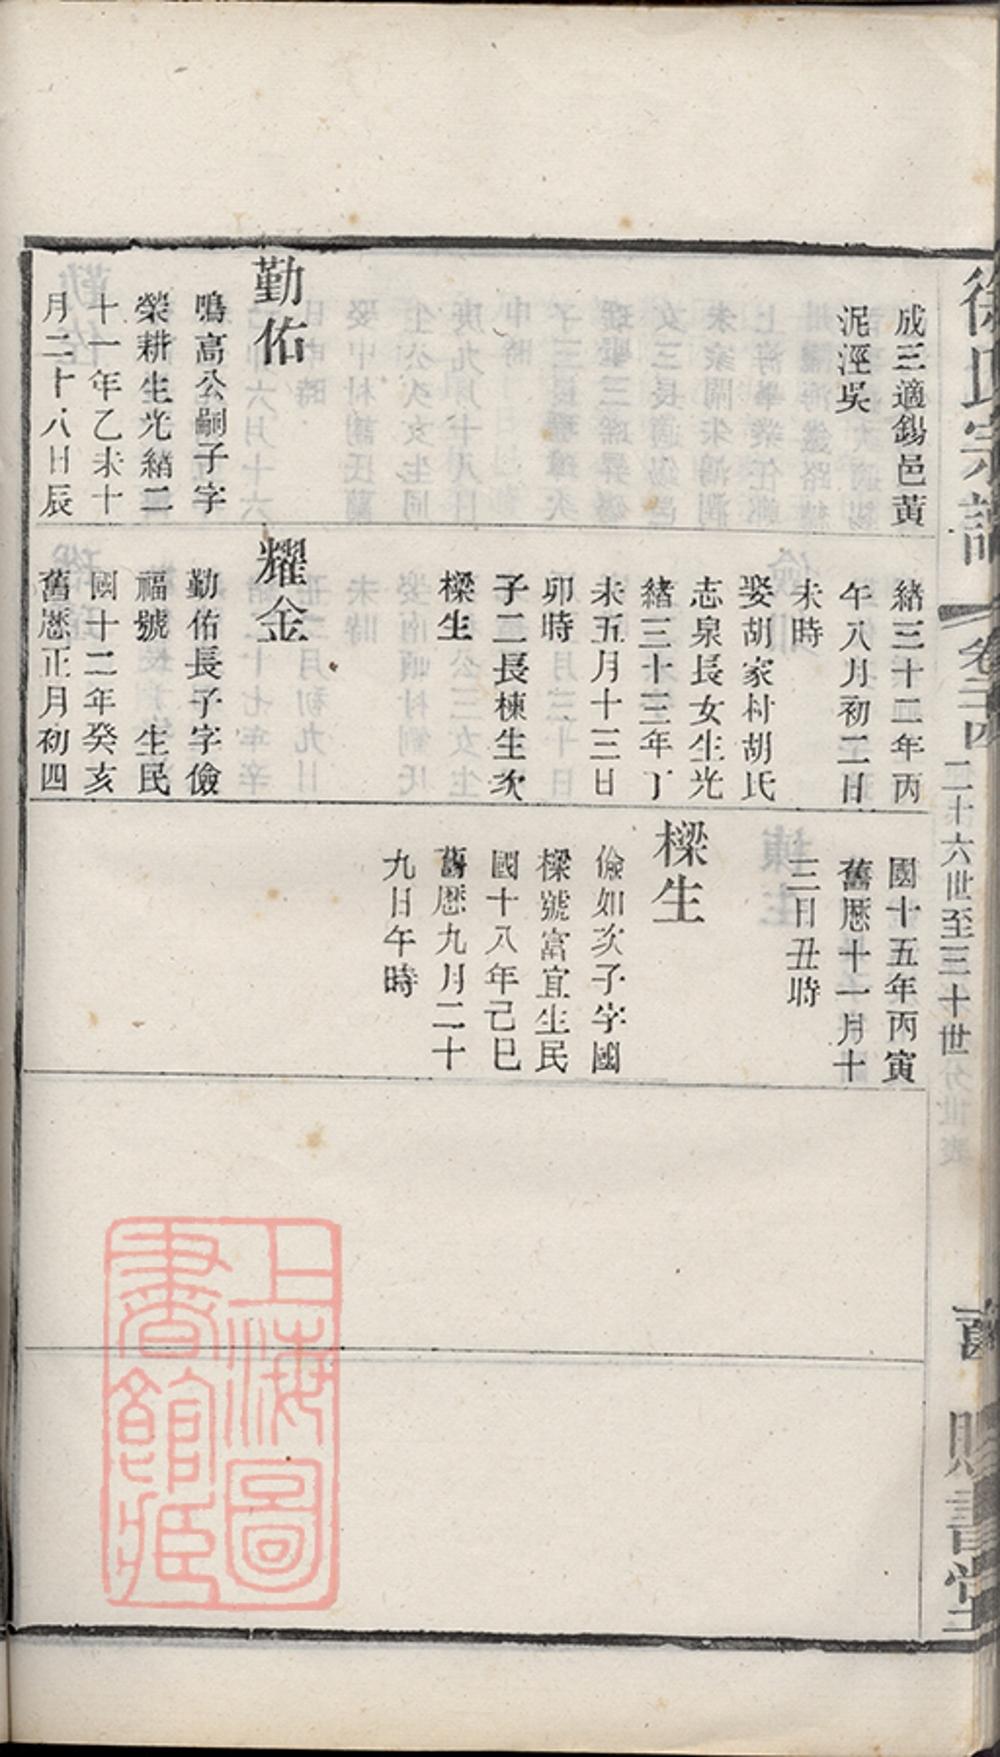 徐氏宗譜
卷三四
二十六世至三十世
賜書堂
成三適錫邑黃
泥涇吳
勤佑
鳴高公嗣子字
榮耕生光緒二
十一年乙未十
月二十八日辰
緒三十二年丙
午八月初二日
未時
娶胡家村胡氏
志泉長女生光
緒三十三年丁
未五月十三日
卯時
子二長棟生次
樑生
耀金
勤佑長子字儉
福號 生民
國十二年癸亥
舊厯正月初四
國十五年丙寅
舊厯十一月十
三日丑時
樑生
儉如次子字國
樑號富宜生民
國十八年己巳
舊厯九月二十
九日午時
上海圖
書館藏